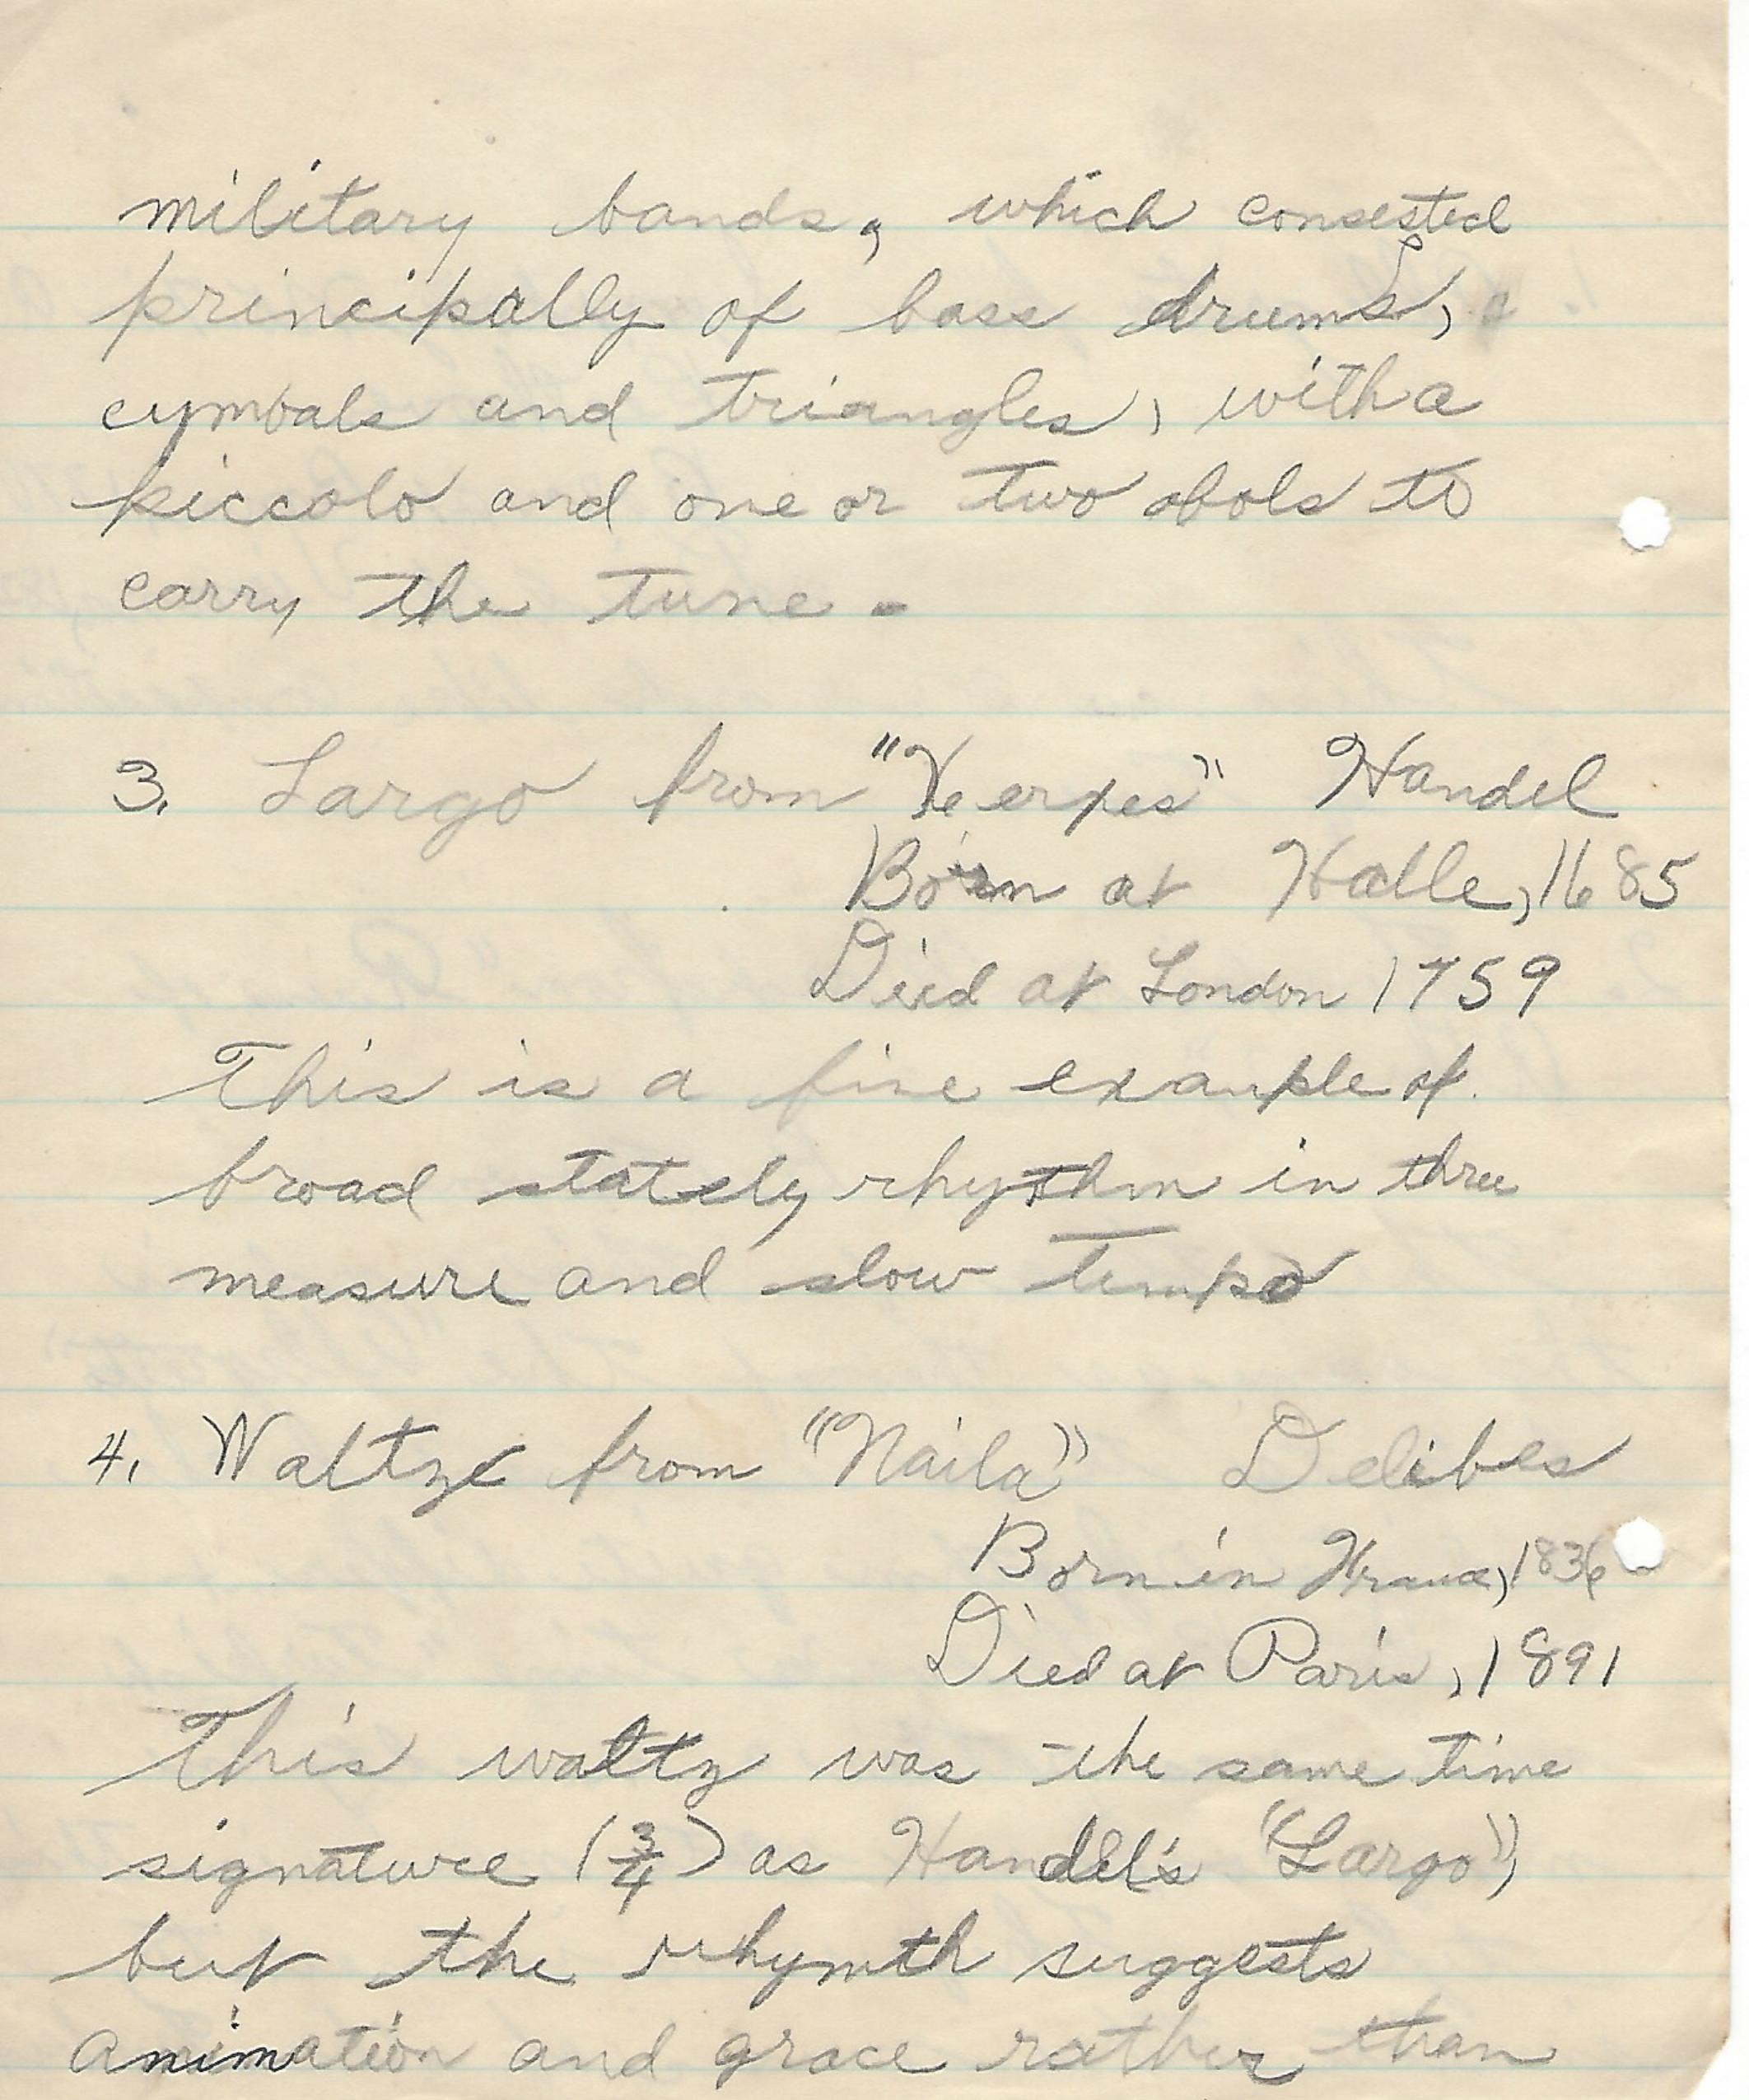 military bands, which consested
principally of bass drums,
cymbals and triangles, with a
piccolo and one or two obols to
carry the tune.
3. Largo from "Xeerxes" Handel
Born at Halle, 1685
Died at London 1759
This is a fine example of
broad stately rhythm in three
measure and slow tempo
4. Waltze from "Naila" Delibes
Born in France, 1836
Died at Paris, 1891
This waltz was the same time
signature (3/4) as Handel's "Largo",
but the rhymth suggests
animation and grace rather than